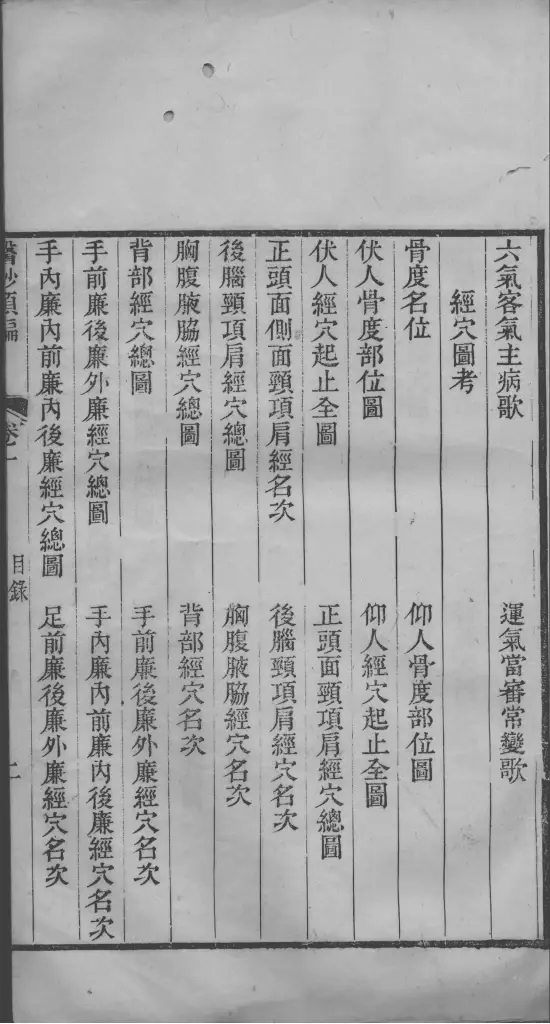 六氣客氣主病歌　運氣當審常變歌
經穴圖考
骨度名位　仰人骨度部位圖
伏人骨度部位圖　仰人經穴起止全圖
伏人經穴起止全圖　正頭面頸項肩經穴總圖
正頭面側面頸項肩經名次　後腦頸項肩經穴名次
後腦頸項肩經穴總圖　胸腹腋脇經穴名次
胸腹腋脇經穴總圖　背部經穴名次
背部經穴總圖　手前廉後廉外廉經穴名次
手前廉後廉外廉經穴總圖　手內廉內前廉內後廉經穴名次
手內廉內前廉內後廉經穴總圖　足前廉後廉外廉經穴名次
醫鈔類編　卷一　目錄　二